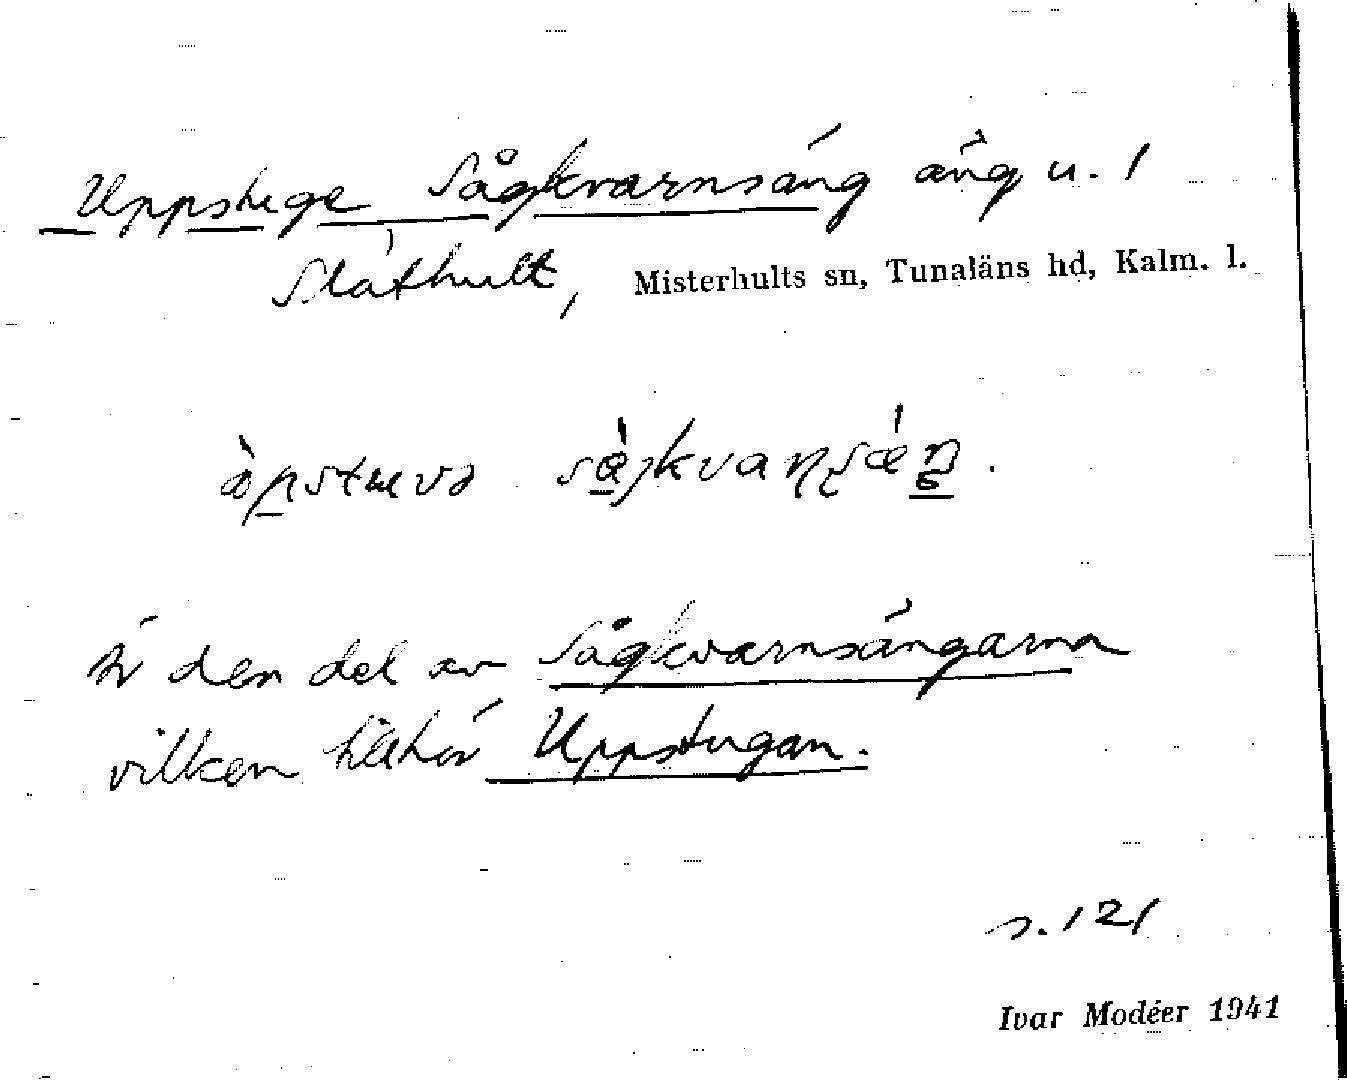 Uppstuge Sågkvarnsäng äng u. 1
Släthult, Misterhults sn, Tunaläns hd, Kalm. l.
Är den del av Sågkvarnsängarna
vilken tillhör Uppstugan.
s. 121
Ivar Modéer 1941